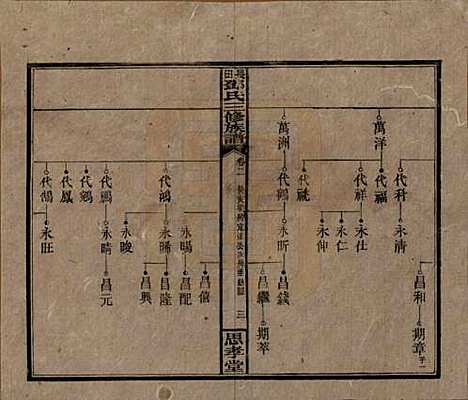 萬洋
代科
代福
代祥
代祝
永清
永仕
永仁
永仲
昌和
期章
萬洲
代鶴
永昕
昌錢
昌繼
期萃
長田鄧氏三修族譜
卷二
三
思孝堂
代鴻
永暘
永晞
永晙
昌僖
昌配
昌隆
昌興
代鵬
永晴
昌元
代鷄
代鳳
代鵠
永旺